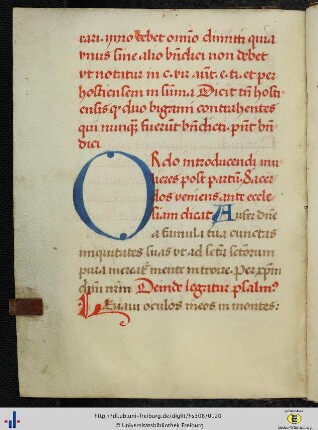 rari. ymo debet omnino dimitti quia
vnius sine alio bñdici non debet
vt notatur in c. vir aut. e. ti. et per
hostiensem in suma Dicit tñ hosti
ensis qꝫ duo bigami contrahentes
qui nunqꝫ fuerũt bñdicti. pñt bñ
dici
Ordo introducendi mu
lieres post partũ. Sacer
dos veniens ante eccle
siam dicat Aufer dñe
a famula tua cunctas
iniquitates suas vt ad sctã sctorum
pura mereat mente introire. Per xpm
dñm nrm Deinde legatur psalmꝰ
Leuaui oculos meos in montes:
http://dl.ub.uni-freiburg.de/diglit/hs308/0120
© Universitätsbibliothek Freiburg